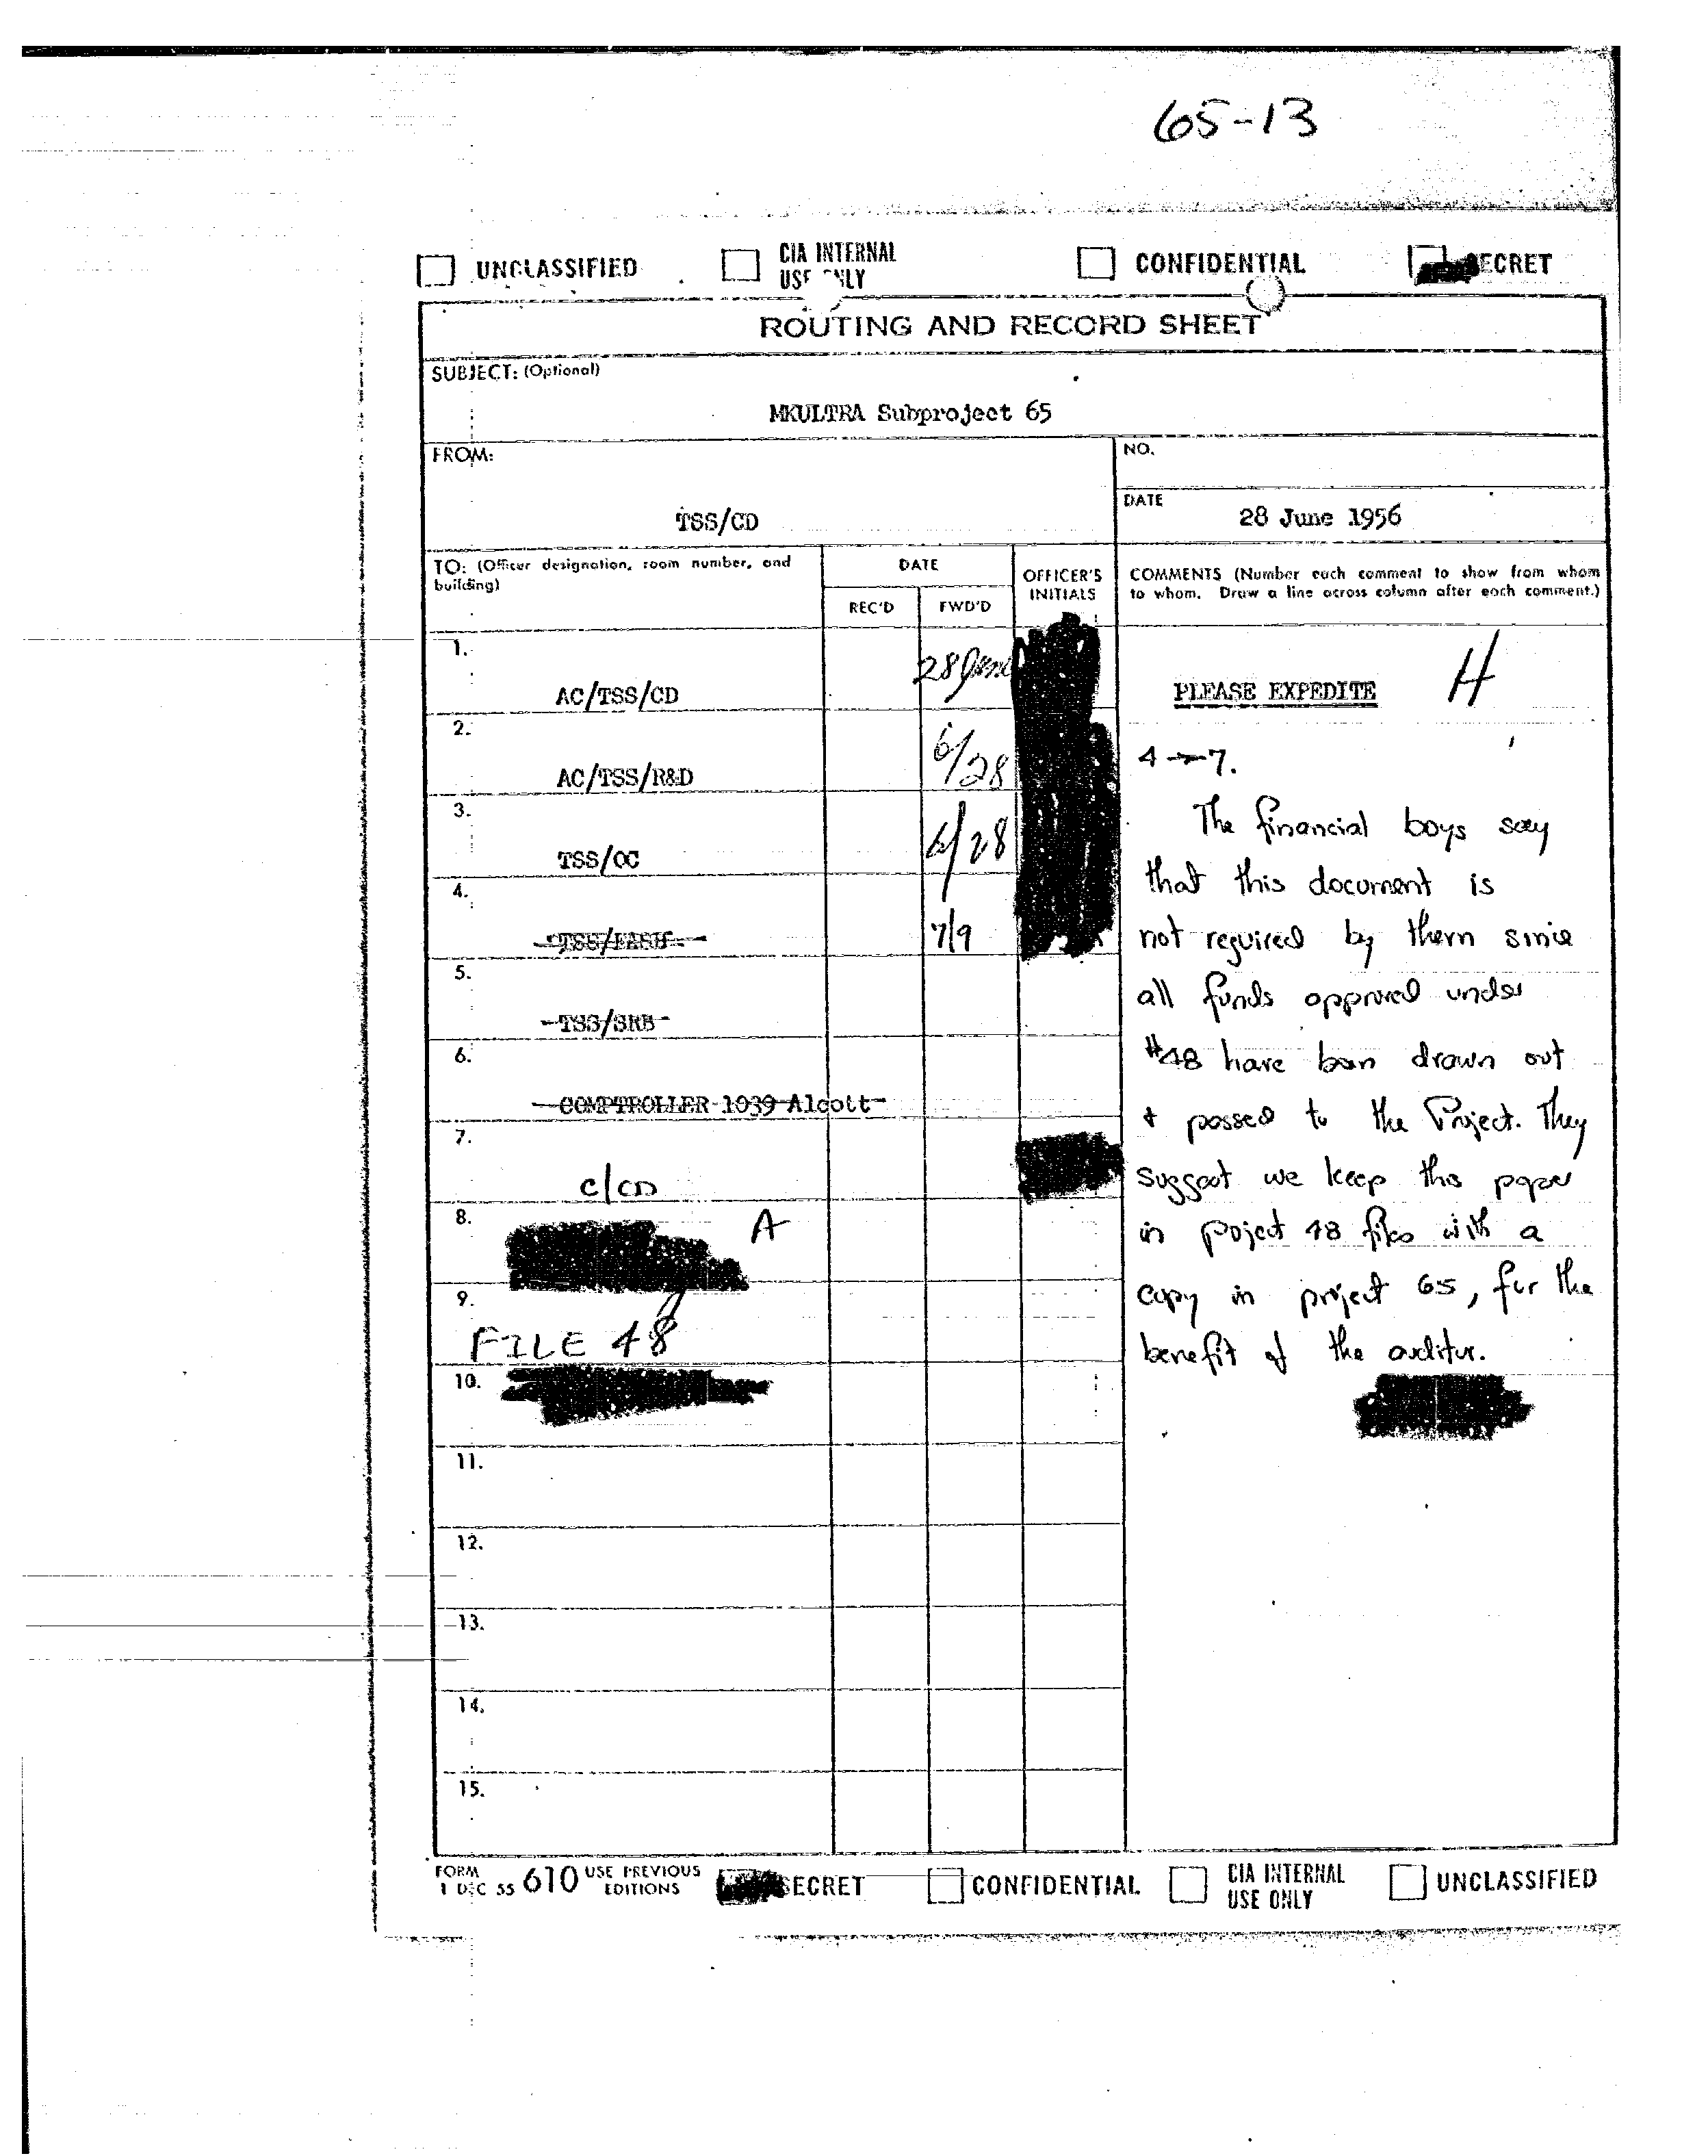 65-13
UNCLASSIFIED
CIA INTERNAL
USE ONLY
CONFIDENTIAL
SECRET
ROUTING AND RECORD SHEET
SUBJECT: (Optional)
MKULTRA Subproject 65
FROM:
TSS/CD
NO.
DATE
28 June 1956
TO: (Officer designation, room number, and
building)
DATE
REC'D
FWD'D
OFFICER'S
INITIALS
COMMENTS (Number each comment to show from whom
to whom. Draw a line across column after each comment.)
1.
AC/TSS/CD
28 June
PLEASE EXPEDITE
H
2.
AC/TSS/R&D
6/28
3.
TSS/OC
6/28
4.
7/9
5.
TSS/SRB
6.
COMPTROLLER 1039 Alcott
7.
C/CD
8.
A
9.
FILE 48
10.
11.
12.
13.
14.
15.
4→7.
The financial boys say
that this document is
not required by them since
all funds approved under
#48 have been drawn out
& passed to the Project. They
suggest we keep this paper
in project 48 files with a
copy in project 65, for the
benefit of the auditor.
FORM
1 DEC 55 610 USE PREVIOUS
EDITIONS
SECRET
CONFIDENTIAL
CIA INTERNAL
USE ONLY
UNCLASSIFIED